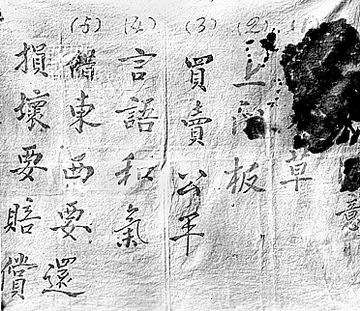 意
草
(2) 上 板
(3) 買賣公平
(4) 言語和氣
(5) 借東西要還
損壞要賠償